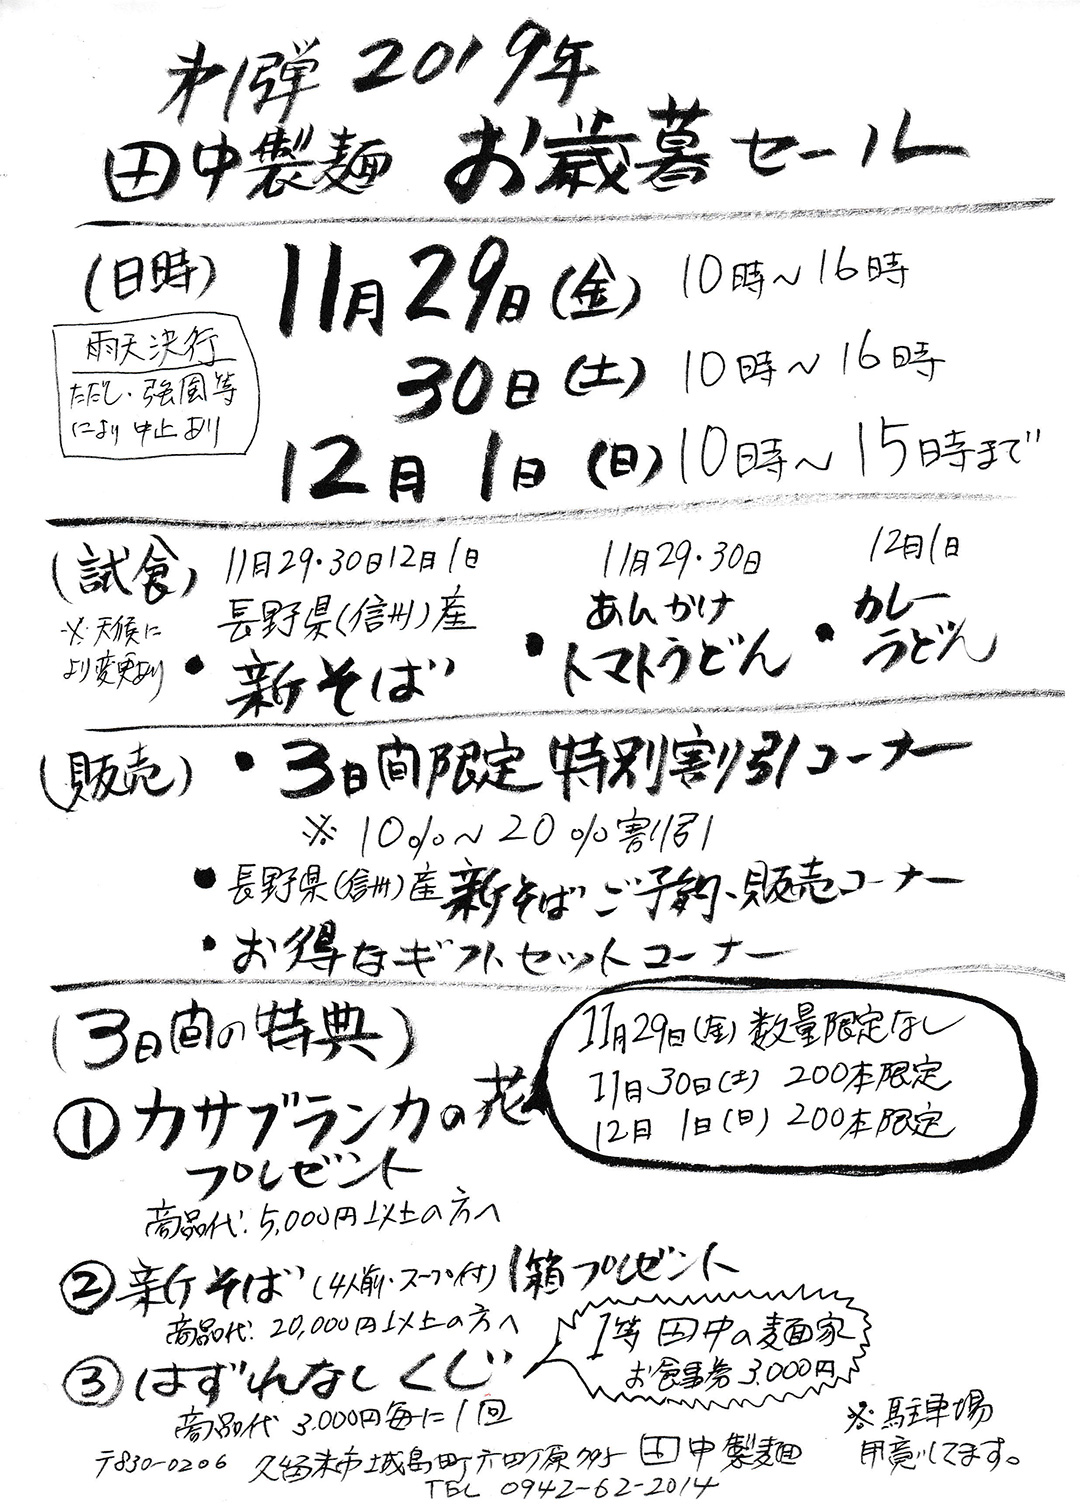 第1弾 2019年
田中製麺 お歳暮セール
(日時) 11月29日(金) 10時~16時
30日(土) 10時~16時
12月1日(日) 10時~15時まで
雨天決行
ただし、強風等
により中止あり
(試食)
※天候に
より変更あり
11月29・30日12月1日
長野県(信州)産
・新そば
11月29・30日
あんかけ
・トマトうどん
12月1日
カレー
・うどん
(販売) ・3日間限定 特別割引コーナー
※10%~20%割引
・長野県(信州)産新そばご予約、販売コーナー
・お得なギフトセットコーナー
(3日間の特典)
①カサブランカの花
プレゼント
商品代 5,000円以上の方へ
11月29日(金) 数量限定なし
11月30日(土) 200本限定
12月1日(日) 200本限定
②新そば(4人前・スープ付)1箱プレゼント
商品代 20,000円以上の方へ
③はずれなしくじ
商品代 3,000円毎に1回
1等 田中の麺家
お食事券 3,000円
※駐車場
用意してます。
〒830-0206 久留米市城島町六町原 田中製麺
TEL 0942-62-2014